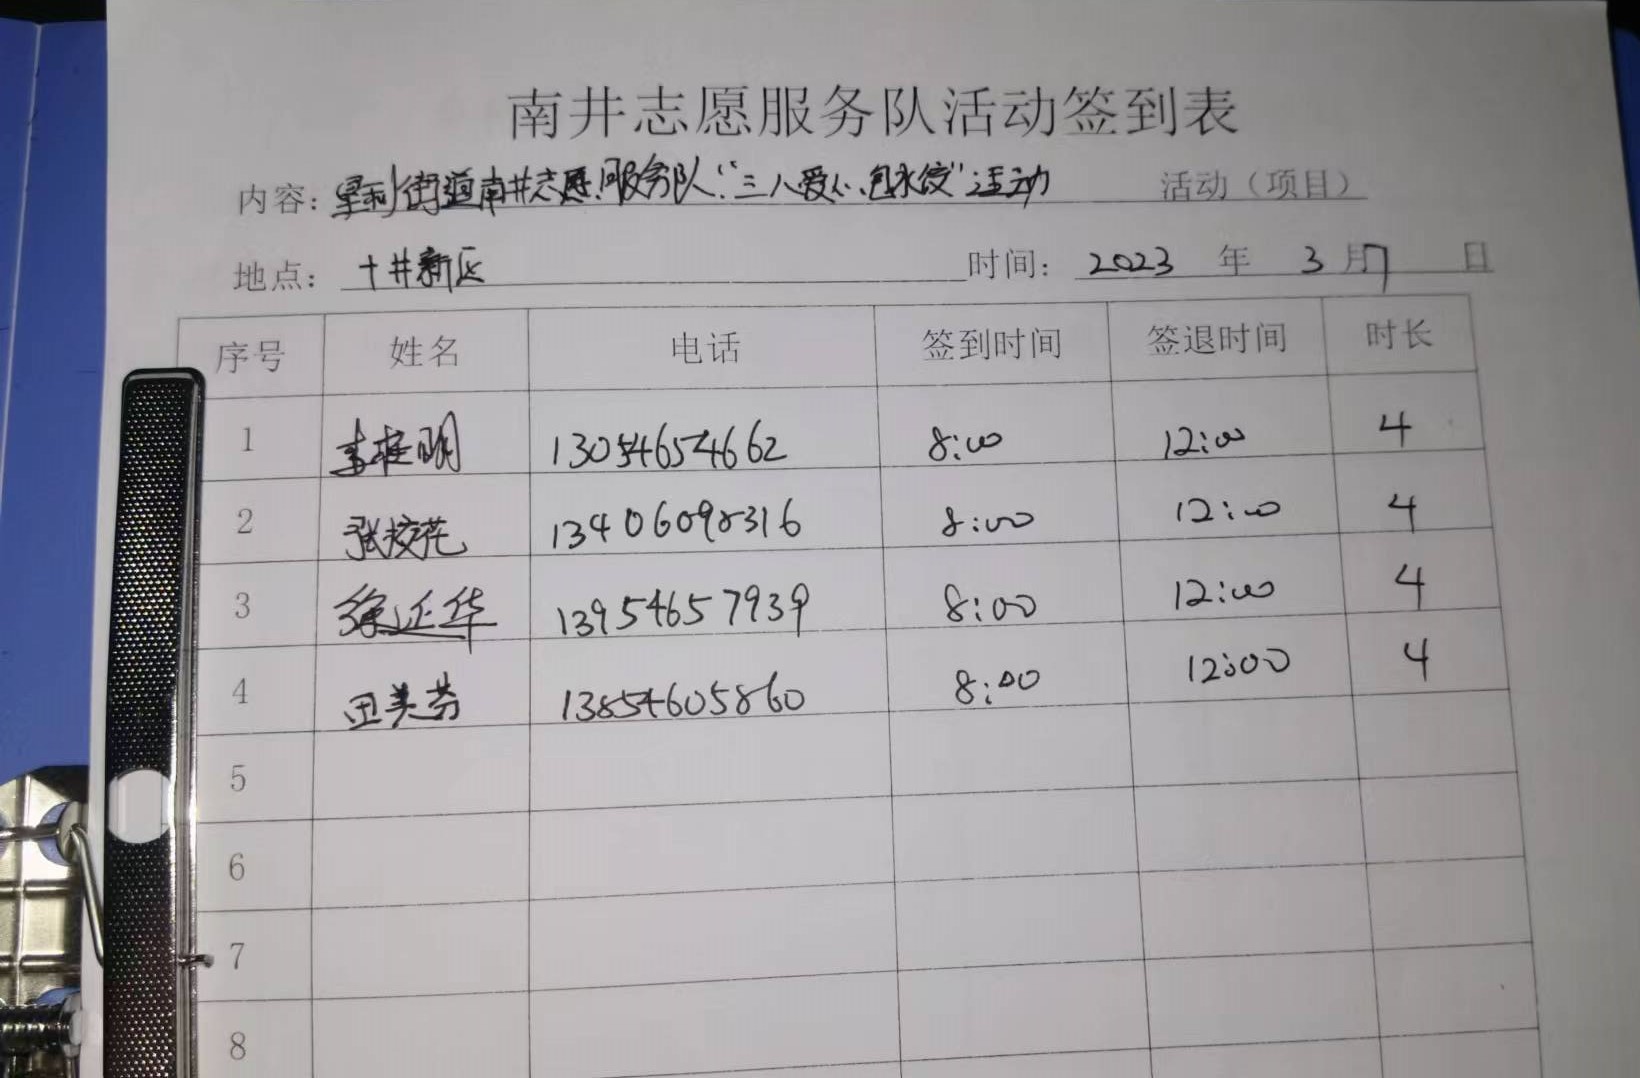 南井志愿服务队活动签到表
内容：垦利街道南井志愿服务队“三八爱心包水饺”活动 活动（项目）
地点： 十井新区 时间： 2023 年 3 月 7 日
序号 姓名 电话 签到时间 签退时间 时长
1 李桂明 13054654662 8:00 12:00 4
2 张校花 13406098316 8:00 12:00 4
3 徐延华 13954657939 8:00 12:00 4
4 田美芬 13854605860 8:00 12:00 4
5
6
7
8